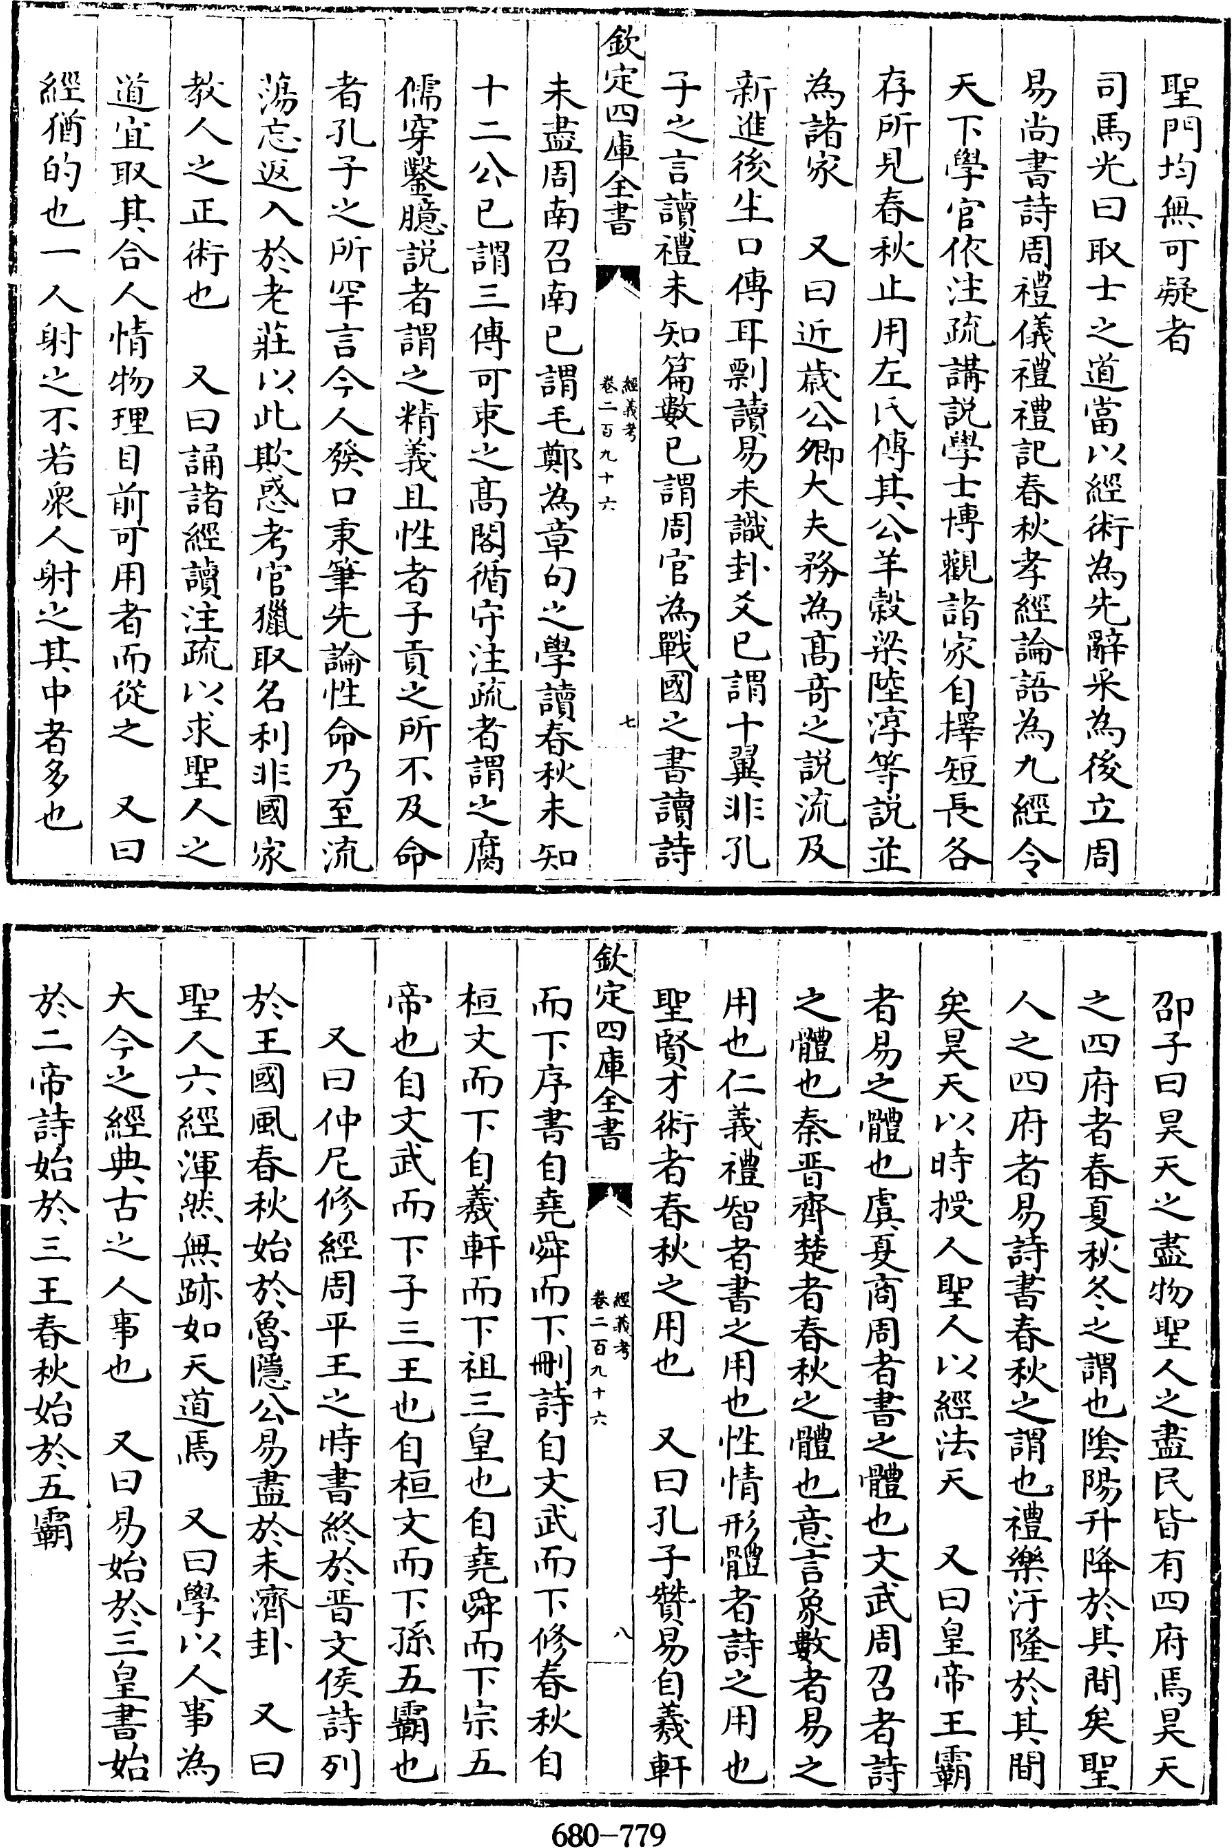 聖門均無可疑者
司馬光曰取士之道當以經術為先辭采為後立周
易尚書詩周禮儀禮禮記春秋孝經論語為九經令
天下學官依注疏講説學士博觀諸家自擇短長各
存所見春秋止用左氏傳其公羊穀梁陸淳等説並
為諸家　又曰近歳公卿大夫務為髙竒之説流及
新進後生口傳耳剽讀易未識卦爻已謂十翼非孔
子之言讀禮未知篇數已謂周官為戰國之書讀詩
欽定四庫全書
經義考
卷二百九十六
七
未盡周南召南已謂毛鄭為章句之學讀春秋未知
十二公已謂三傳可束之髙閣循守注疏者謂之腐
儒穿鑿臆説者謂之精義且性者子貢之所不及命
者孔子之所罕言今人發口秉筆先論性命乃至流
蕩忘返入於老莊以此欺惑考官獵取名利非國家
教人之正術也　又曰誦諸經讀注疏以求聖人之
道宜取其合人情物理目前可用者而從之　又曰
經猶的也一人射之不若衆人射之其中者多也
邵子曰昊天之盡物聖人之盡民皆有四府焉昊天
之四府者春夏秋冬之謂也陰陽升降於其間矣聖
人之四府者易詩書春秋之謂也禮樂汙隆於其間
矣昊天以時授人聖人以經法天　又曰皇帝王霸
者易之體也虞夏商周者書之體也文武周召者詩
之體也秦晋齊楚者春秋之體也意言象數者易之
用也仁義禮智者書之用也性情形體者詩之用也
聖賢才術者春秋之用也　又曰孔子贊易自羲軒
欽定四庫全書
經義考
卷二百九十六
八
而下序書自堯舜而下刪詩自文武而下修春秋自
桓文而下自羲軒而下祖三皇也自堯舜而下宗五
帝也自文武而下子三王也自桓文而下孫五霸也
又曰仲尼修經周平王之時書終於晋文侯詩列
於王國風春秋始於魯隱公易盡於未濟卦　又曰
聖人六經渾然無跡如天道焉　又曰學以人事為
大今之經典古之人事也　又曰易始於三皇書始
於二帝詩始於三王春秋始於五霸
680-779